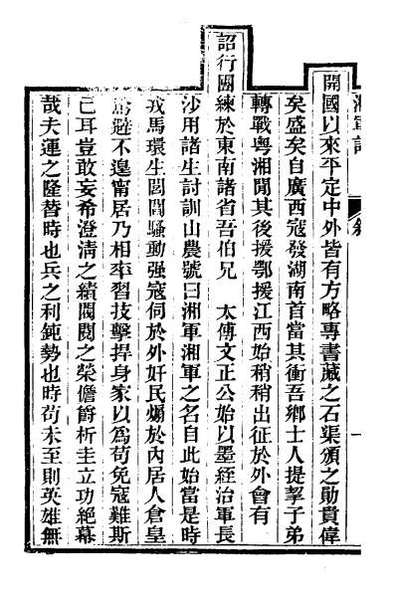 開國以來平定中外皆有方略專書藏之石渠頒之勛貴偉
矣盛矣自廣西寇發湖南首當其衝吾鄉士人提挈子弟
轉戰粵湘閒其後援鄂援江西始稍稍出征於外會有
詔行團練於東南諸省吾伯兄　太傅文正公始以墨絰治軍長
沙用諸生討訓山農號曰湘軍湘軍之名自此始當是時
戎馬環生閭閻騷動强寇伺於外奸民煽於內居人倉皇
避不遑甯居乃相率習技擊捍身家以爲苟免寇難斯
已耳豈敢妄希澄清之績閥閱之榮儋爵析圭立功絶幕
哉夫運之隆替時也兵之利鈍勢也時苟未至則英雄無